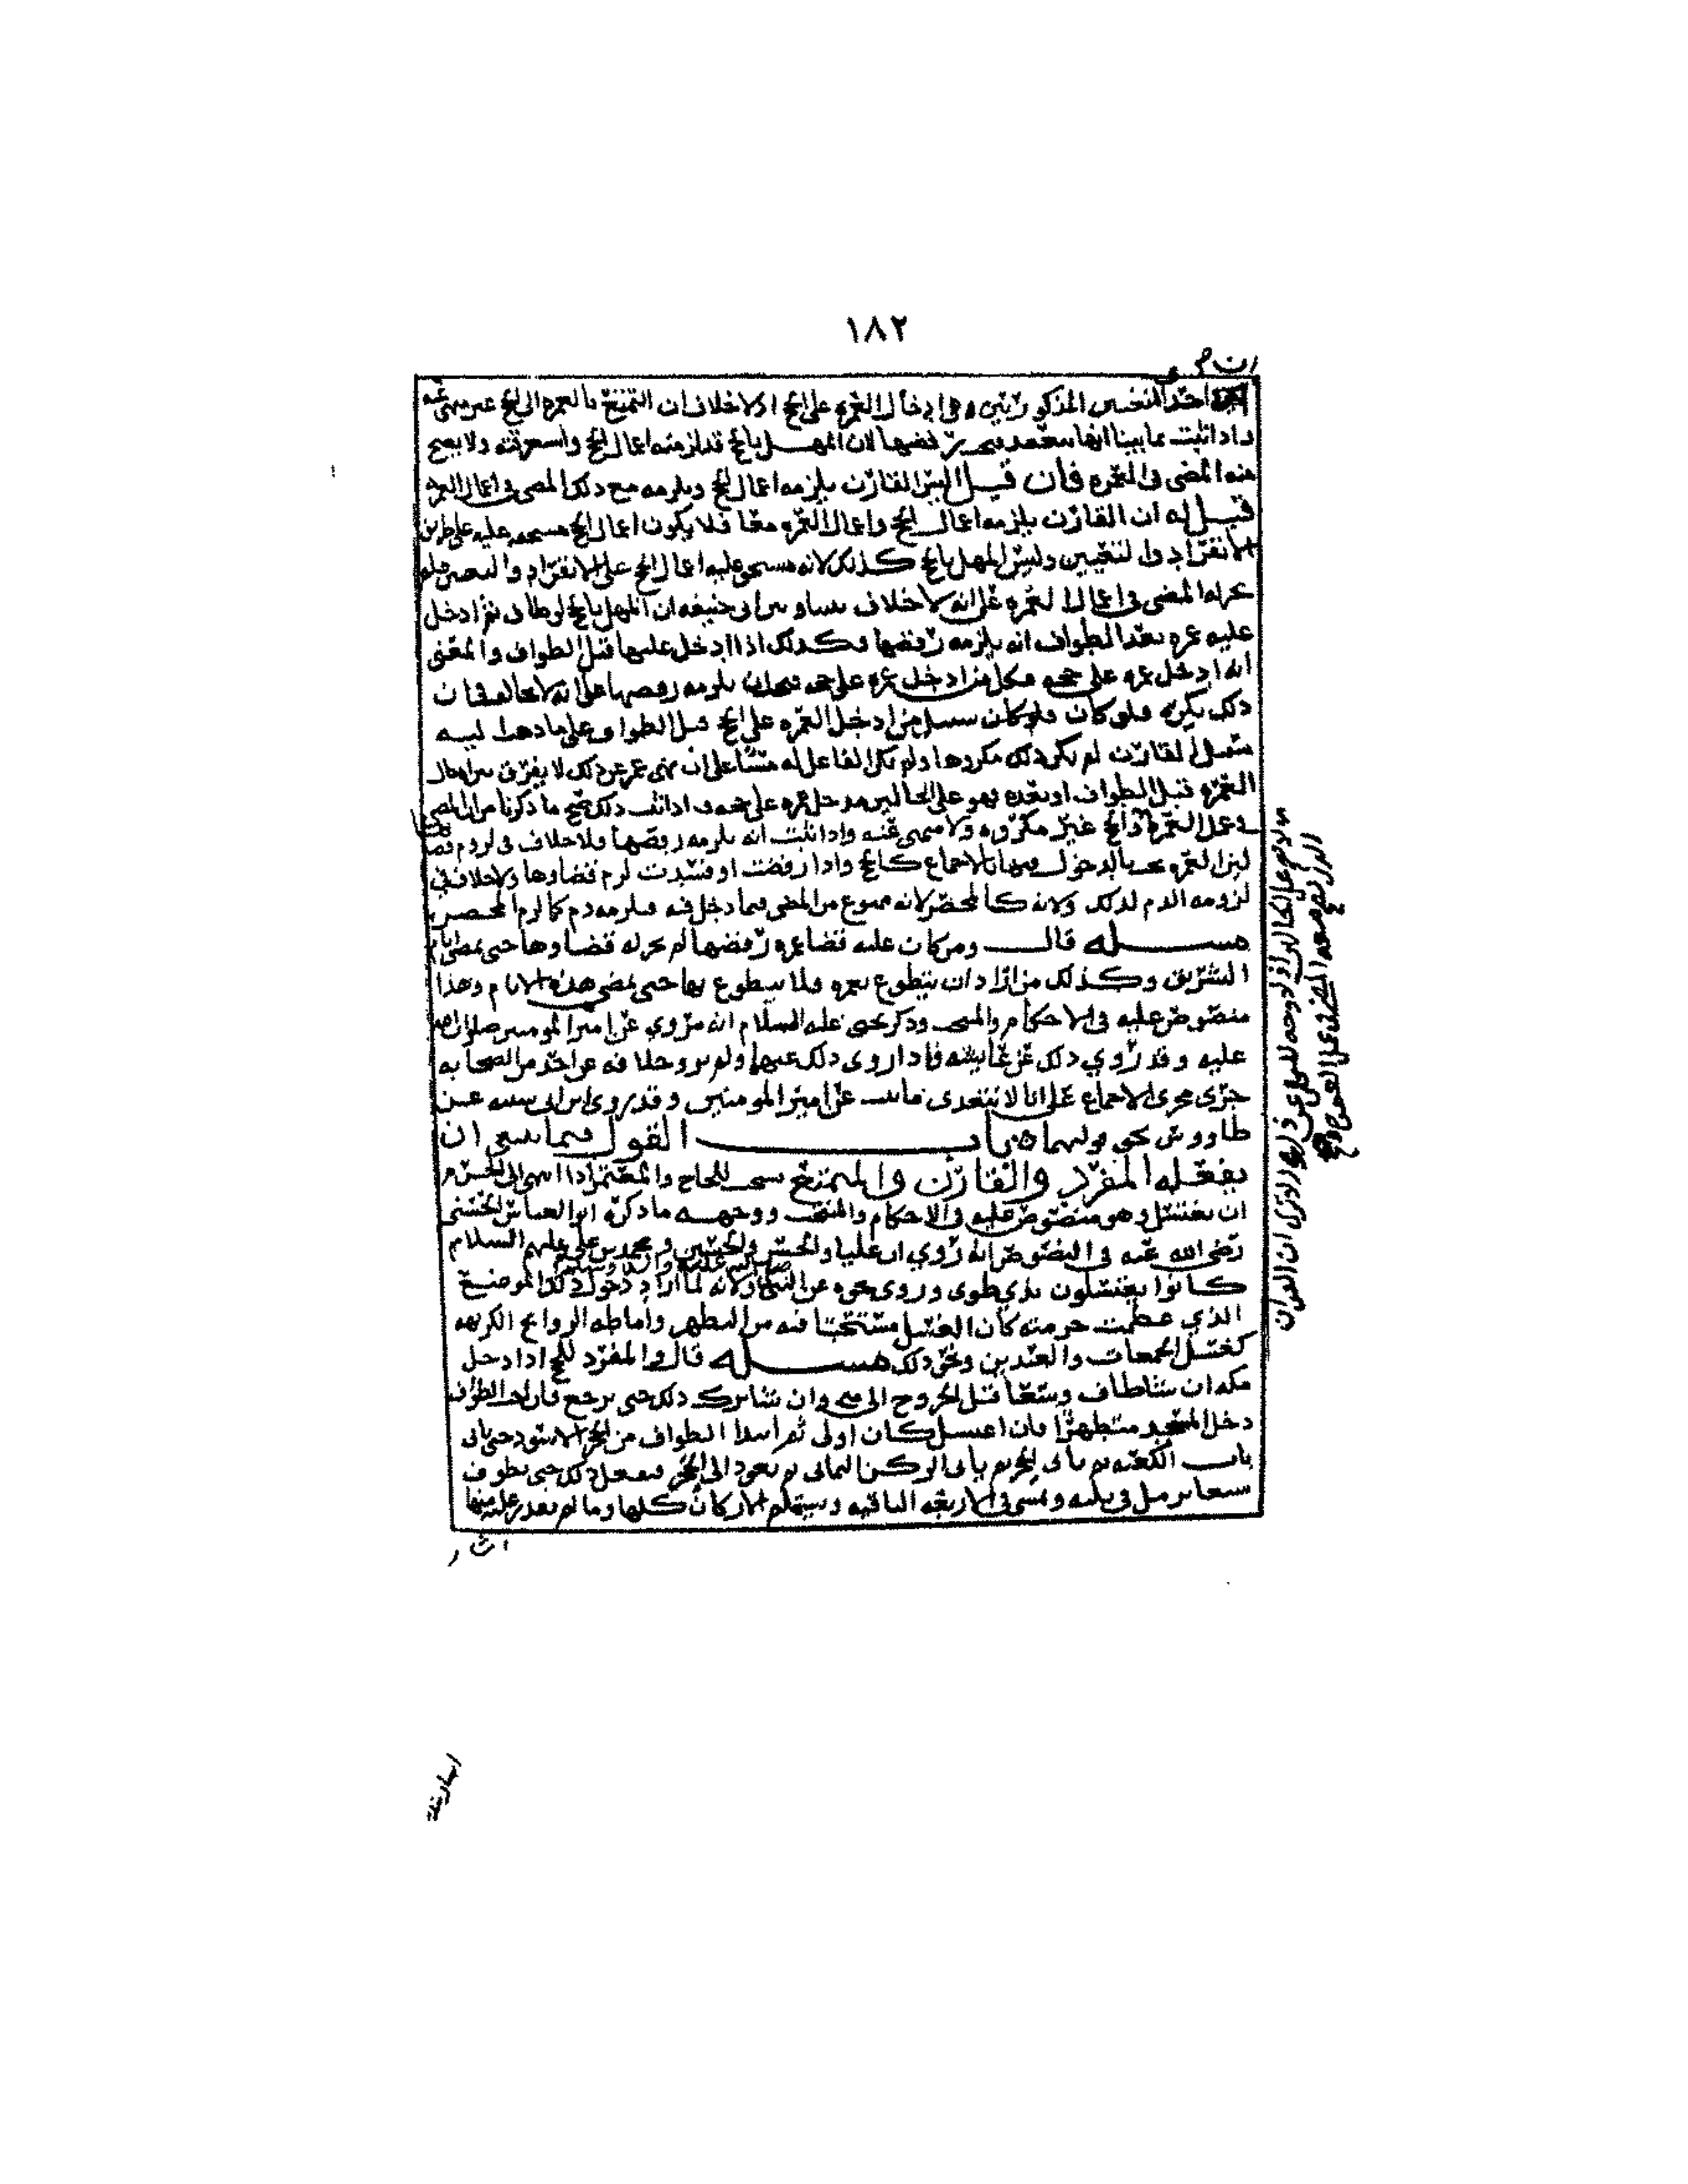 ١٨٢
احد المذكورتين وهي ادخال العمره على الحج اذ لا خلاف ان التمتع بالعمره الى الحج غير منهي عنه
واذا ثبت بما بينا انها رفضها لان المهل بالحج قد لزمته اعمال الحج ولا يصح
منه المضي في العمره فان قيل اليس القارن يلزمه اعمال الحج ويلزمه مع ذلك المضي في اعمال العمره
قيل له ان القارن يلزمه اعمال الحج واعمال العمره معا فلا يكون اعمال الحج مستحقه عليه على طريق
الانفراد والتعيين وليس المهل بالحج كذلك لانه مستحق عليه اعمال الحج على الانفراد والتعيين فلم
يجز له المضي في اعمال العمره على انه لا خلاف بيننا وبين ابي حنيفه ان المهل بالحج لو طاف ثم ادخل
عليه عمره بعد الطواف انه يلزمه رفضها وكذلك اذا ادخل عليها قبل الطواف والمعنى
انه ادخل عمره على حجه فكل من ادخل عمره على حجه فيجب ان يلزمه رفضها على انه لا خالف في ان
ذلك يكره فلو كان سبيل من ادخل العمره على الحج قبل الطواف على ما ذهبوا اليه
سبيل القارن لم يكن ذلك مكروها ولم يكن الفاعل له مسيا على ان نهي عمر عن ذلك لا يفرق بين ادخال
العمره قبل الطواف او بعده فهو على الحالين مدخل عمره على حجه واذا ثبت ذلك صح ما ذكرنا من ان المضي
في عمل العمره والحج غير مكروه ولا منهي عنه واذا ثبت انه يلزمه رفضها فلا خلاف في لزوم قضائها
لان العمره تجب بالدخول فيها بالاجماع كالحج واذا رفضت او فسدت لزم قضاوها ولا خلاف في
لزومه الدم لذلك ولانه كالمحصر لانه ممنوع من المضي فيما دخل فيه فيلزمه دم كما لزم المحصر
مسله قال ومن كان عليه قضا عمره رفضها لم يجز له قضاوها حتى تمضي ايام
التشريق وكذلك من اراد ان يتطوع بعمره فلا يتطوع بها حتى تمضي هذه الايام وهذا
منصوص عليه في الاحكام والمنتخب وذكر يحيى عليه السلام انه مروي عن امير المومنين صلوات الله
عليه وقد روي ذلك عن عايشه فاذا روى ذلك عنهما ولم يرو خلافه عن احد من الصحابه
جرى مجرى الاجماع على انا لا نتعدى ما ثبت عن امير المومنين وقد روى ابن ابي شيبه عن
طاووس نحو قولهما باب القول فيما ينبغي ان
يفعله المفرد والقارن والمتمتع يستحب للحاج والمعتمر اذا انتهى الى الحرم
ان يغتسل وهو منصوص عليه في الاحكام والمنتخب ووجهه ما ذكره ابو العباس الحسني
رضي الله عنه في النصوص انه روي ان عليا والحسن والحسين ومحمد بن علي عليهم السلام
كانوا يغتسلون بذي طوى وروي نحوه عن النبي صلى الله عليه واله وسلم ولانه لما اراد دخول ذلك الموضع
الذي عظمت حرمته كان الغسل مستحبا فيه من التطهر واماطه الروايح الكريهه
كغسل الجمعات والعيدين ونحو ذلك مسله قال والمفرد للحج اذا دخل
مكه ان شا طاف وسعا قبل الخروج الى منى وان شا ترك ذلك حتى يرجع فان احب الطواف
دخل المسجد متطهرا فان اغتسل كان اولى ثم ابتدا الطواف من الحجر الاسود حتى ياتي
باب الكعبه ثم ياتي الحجر ثم ياتي الركن اليماني ثم يعود الى الحجر يفعل ذلك حتى يطوف
سبعا يرمل في ثلثه ويمشي في الاربعه الباقيه ويستلم الاركان كلها وما لم يقدر عليه منها